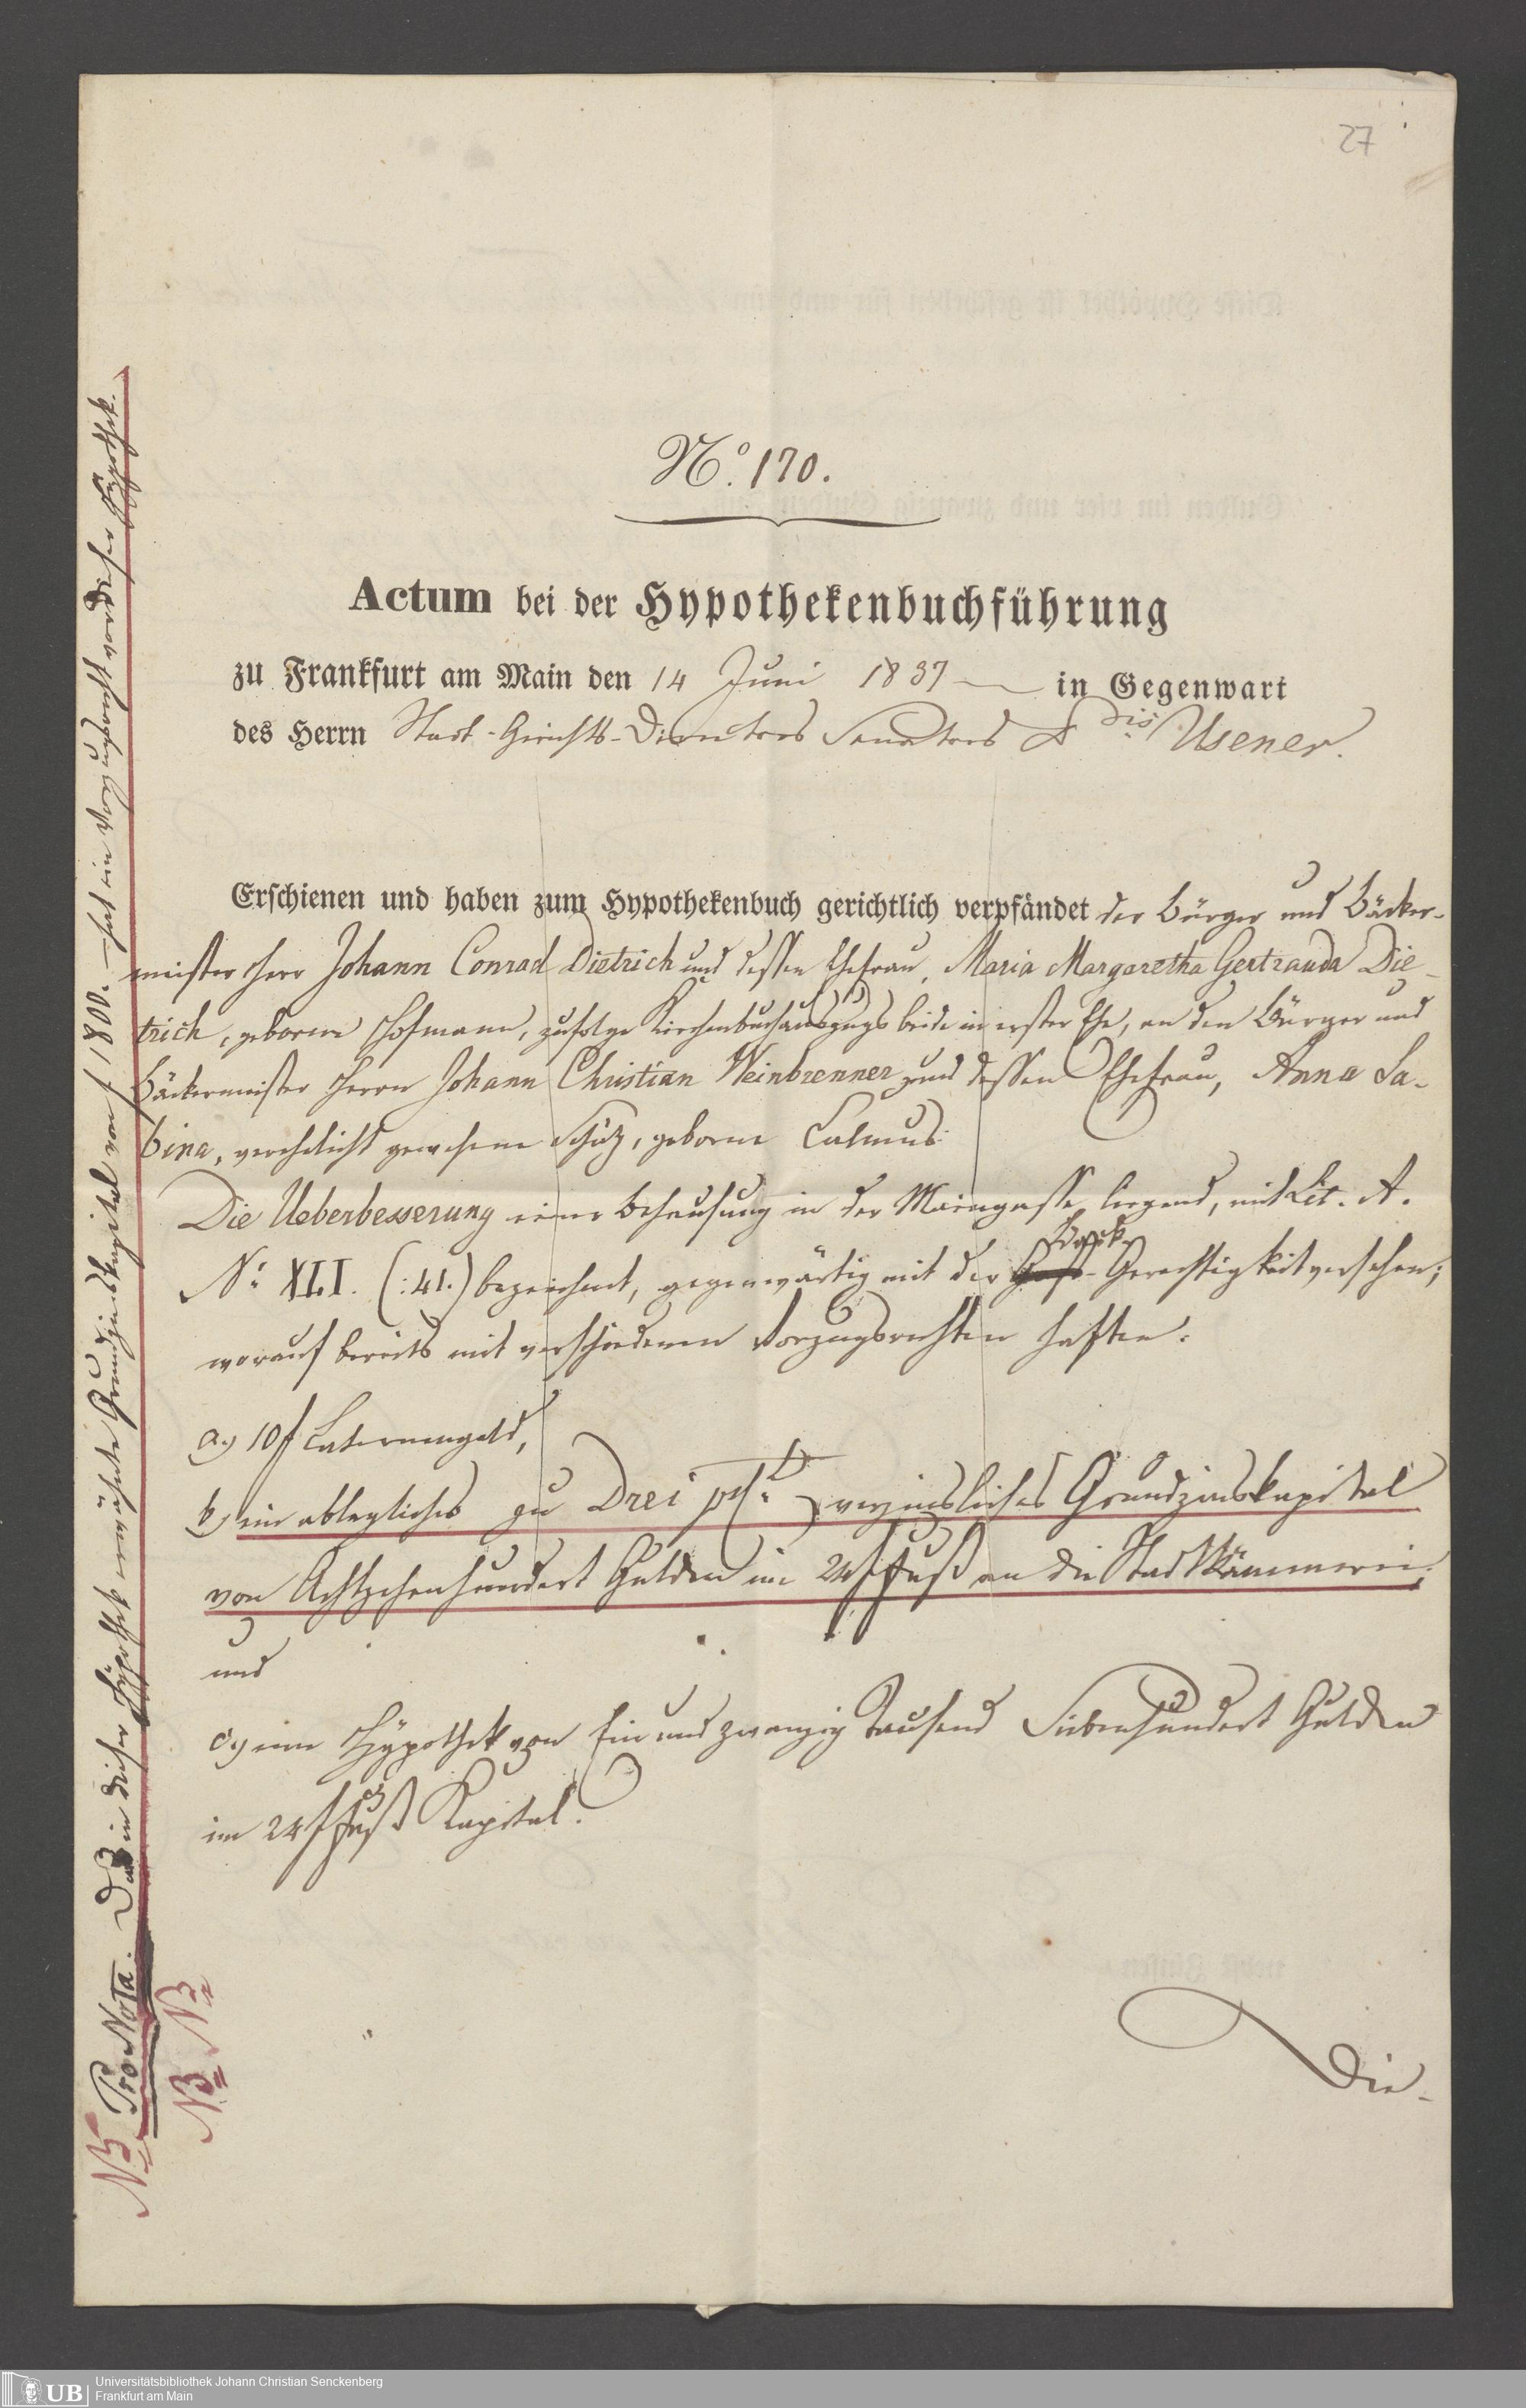 27
No. 170.
Actum bei der Hypothekenbuchführung
zu Frankfurt am Main den 14 Juni 1837 in Gegenwart
des Herrn Stadt-Gerichts-Directors Senators Dris Usener.
Erschienen und haben zum Hypothekenbuch gerichtlich verpfändet der Bürger und Bäcker-
meister Herr Johann Conrad Dietrich und dessen Ehefrau, Maria Margaretha Gertrauda Die-
trich, geborne Hofmann, zufolge Kirchenbuchauszugs beide in erster Ehe, an den Bürger und
Bäckermeister Herrn Johann Christian Weinbrenner und dessen Ehefrau, Anna Sa-
bina, verehelicht gewesene Schüz, geborne Calmus:
Die Ueberbesserung einer Behausung in der Maingasse liegend, mit Lit. A.
No. XLI. (:41.) bezeichnet, gegenwärtig mit der Back-Gerechtigkeit versehen;
worauf bereits mit verschiedenen Vorzugsrechten haften:
a.) 10 f Laternengeld,
b.) ein ablegliches zu Drei pCt. verzinsliches Grundzinskapital
von Achtzehenhundert Gulden im 24 f Fuß an die Stadtkämmerei;
und
c.) eine Hypothek von Ein und zwanzig Tausend Siebenhundert Gulden
im 24 f Fuß Kapital.
Die-
NB Pro Nota. Das in dieser Hypothek erwähnte Grundzinskapital von f 1800.- hat ein Vorzugsrecht vor dieser Hypothek.
NB NB
UB
Universitätsbibliothek Johann Christian Senckenberg
Frankfurt am Main